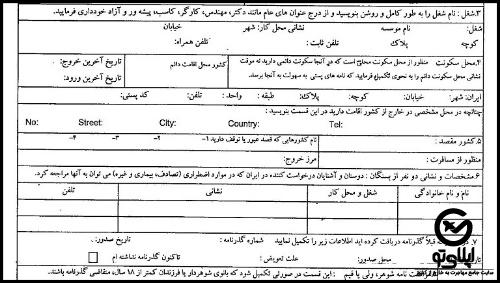 ۳.شغل : نام شغل را به طور کامل و روشن بنویسید و از درج عنوان های عام مانند دکتر، مهندس، کارگر، کاسب، پیشه ور و آزاد خودداری فرمایید.
شغل: نام موسسه نشانی محل کار: شهر خیابان
کوچه پلاک تلفن ثابت : تلفن همراه:
۴.محل سکونت منظور از محل سکونت محلی است که در آنجا سکونت دائمی دارید نه موقت
نشانی محل سکونت دائم را به نحوی تکمیل فرمایید که نامه های پستی به سهولت به آنجا برسد.
کشور محل اقامت دائم
تاریخ آخرین خروج:
تاریخ آخرین ورود:
ایران: شهر خیابان کوچه پلاک: طبقه : واحد : تلفن: کد پستی:
چنانچه در محل مشخصی در خارج از کشور اقامت دارید در این قسمت بنویسید :
No: Street: City: Country: Tel:
۵.کشور مقصد : نام کشورهایی که قصد عبور یا توقف دارید ۱- ۲- ۳- ۴-
منظور از مسافرت : مرز خروج:
۶.مشخصات و نشانی دو نفر از بستگان : دوستان و آشنایان درخواست کننده در ایران که در موارد اضطراری (تصادف، بیماری و غیره) می توان به آنها مراجعه کرد.
نام و نام خانوادگی شغل و محل کار نشانی تلفن
۷. قبلاً گذرنامه دریافت کرده اید اطلاعات زیر را تکمیل نمایید شماره گذرنامه : تاریخ صدور:
محل صدور: علت تعویض : تاکنون گذرنامه نداشته ام
نامه شوهر، ولی یا قیم : این قسمت در صورتی تکمیل شود که بانوی شوهردار یا فرزندان کمتر از ۱۸ سال، متقاضی گذرنامه باشند.
اپلای‌تو
سایت جامع مهاجرت به خارج از کشور